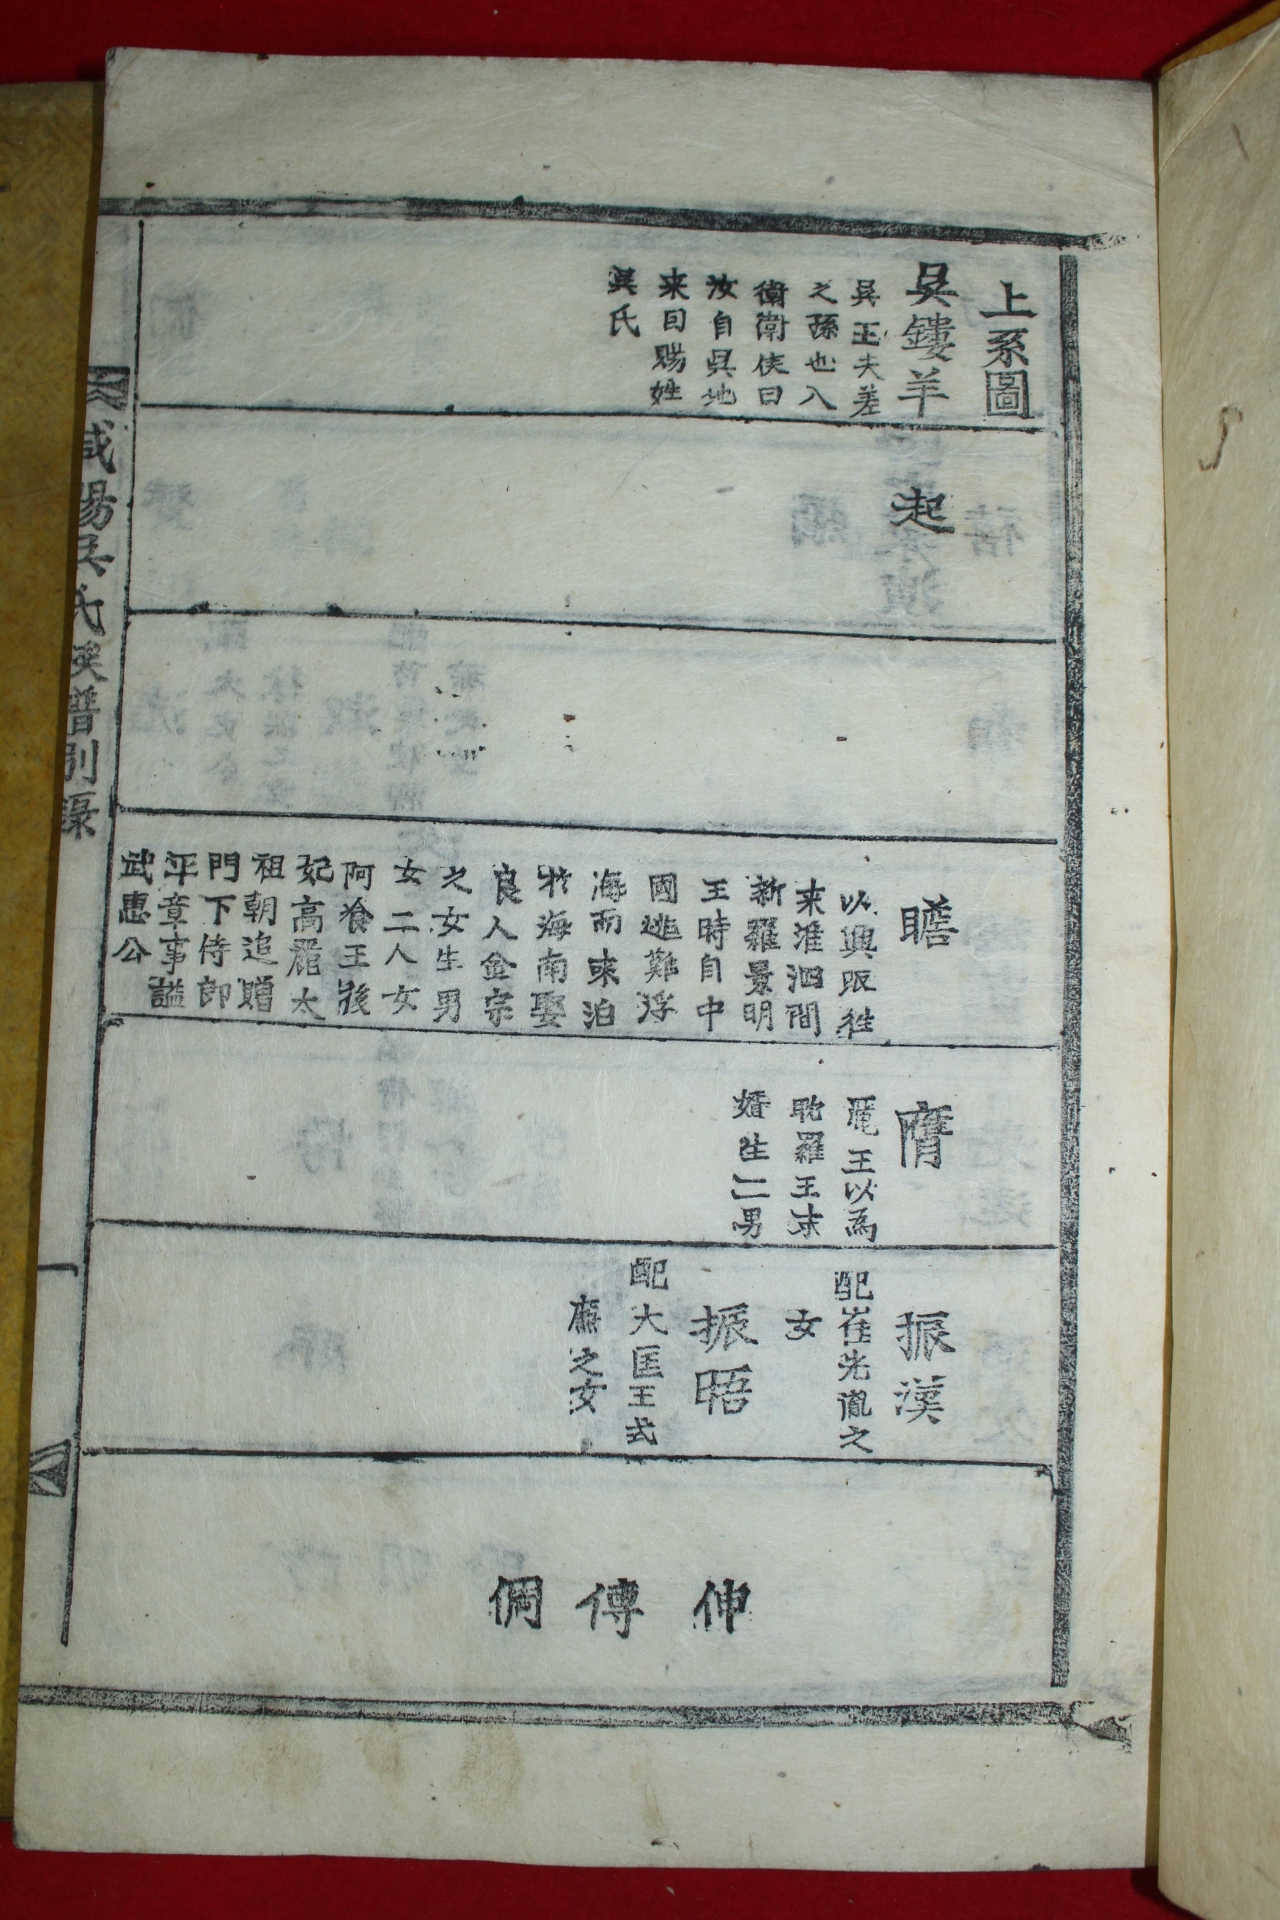 上系圖
吳鏤羊
吳王夫差
之孫也入
衛衛侯曰
汝自吳地
来囙賜姓
吳氏
起
瞻
以興販徃
来淮泗間
新羅景明
王時自中
國逃難浮
海而来泊
扵海南娶
良人金宗
之女生男
女二人女
阿飡王後
妃高麗太
祖朝追贈
門下侍郎
平章事謚
武惠公
膺
麗王以為
耽羅王末
婿生二男
振漢
配崔光胤之
女
振晤
配大匡王式
廉之女
伸
傳
倜
咸陽吳氏族譜別録
一